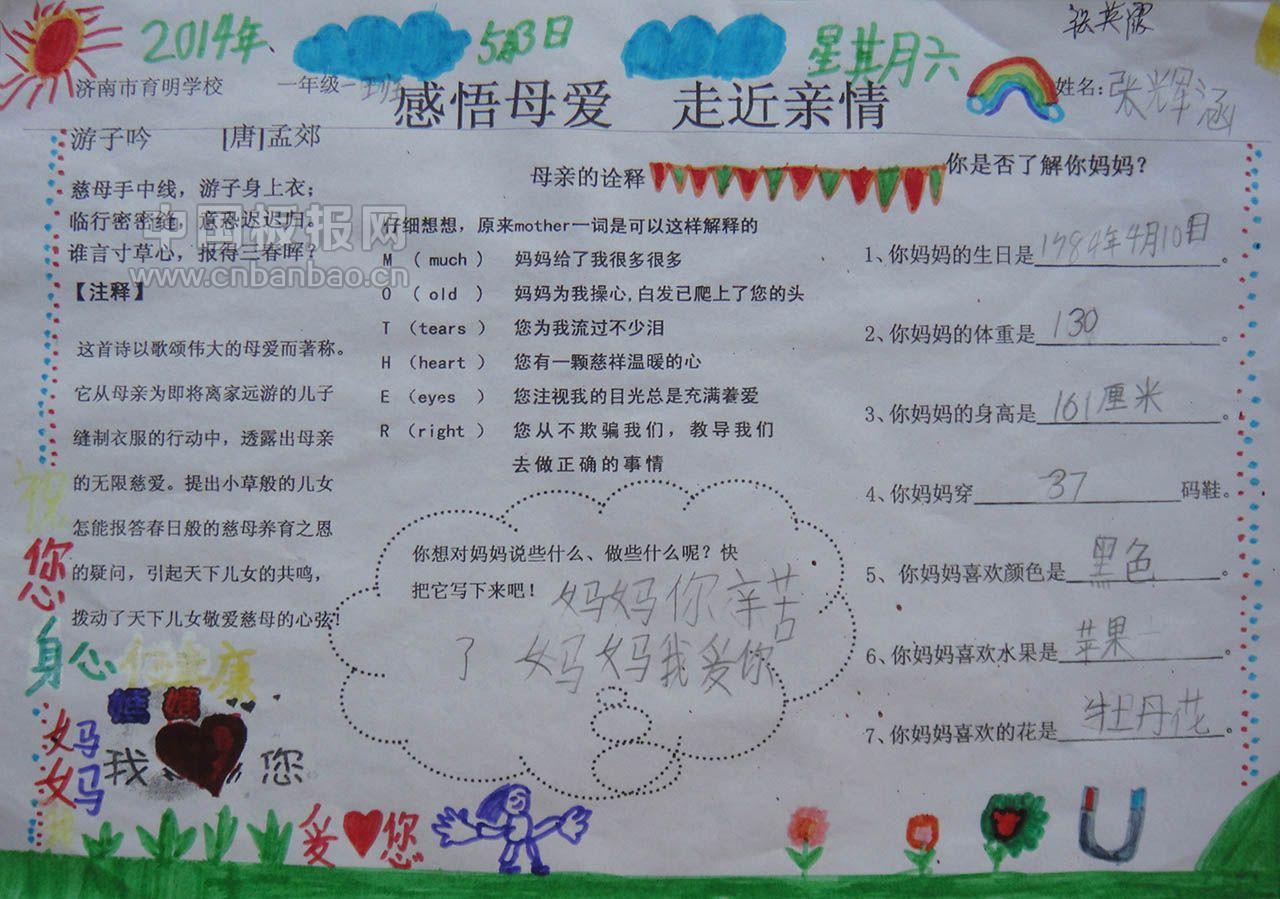 2014年 5月3日 星其月六
张英儒
济南市育明学校 一年级一班 姓名:张辉涵
感悟母爱 走近亲情
游子吟 [唐]孟郊
慈母手中线,游子身上衣;
临行密密缝,意恐迟迟归。
谁言寸草心,报得三春晖?
中国板报网
www.cnbanbao.cn
【注释】
这首诗以歌颂伟大的母爱而著称。
它从母亲为即将离家远游的儿子
缝制衣服的行动中,透露出母亲
的无限慈爱。提出小草般的儿女
怎能报答春日般的慈母养育之恩
的疑问,引起天下儿女的共鸣,
拨动了天下儿女敬爱慈母的心弦!
母亲的诠释
仔细想想,原来mother一词是可以这样解释的
M ( much ) 妈妈给了我很多很多
O ( old ) 妈妈为我操心,白发已爬上了您的头
T (tears ) 您为我流过不少泪
H (heart ) 您有一颗慈祥温暖的心
E (eyes ) 您注视我的目光总是充满着爱
R (right ) 您从不欺骗我们,教导我们
去做正确的事情
你想对妈妈说些什么、做些什么呢?快
把它写下来吧! 妈妈你亲苦
了 妈妈我爱你
你是否了解你妈妈?
1、你妈妈的生日是1984年4月10日。
2、你妈妈的体重是130。
3、你妈妈的身高是161厘米。
4、你妈妈穿37码鞋。
5、你妈妈喜欢颜色是黑色。
6、你妈妈喜欢水果是苹果。
7、你妈妈喜欢的花是牡丹花。
祝
您
身心 康
妈
妈
我 您
爱 您